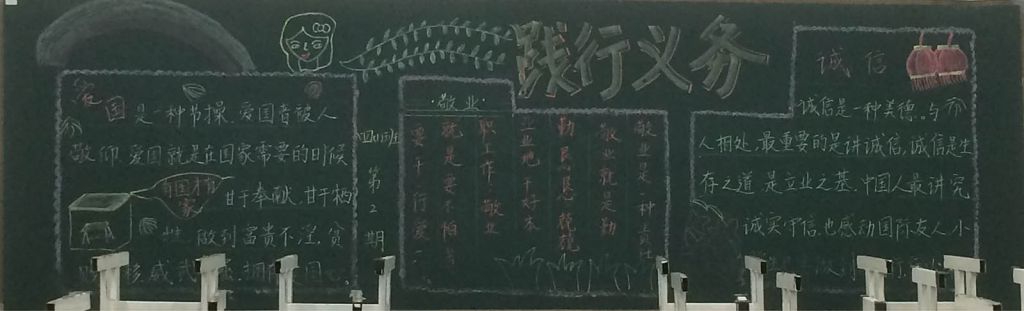 践行义务
国是一种节操,爱国者被人
敬仰,爱国就是在国家需要的时候
有国才有
家
甘于奉献,甘于牺
牲 做到富贵不淫,贫
第2期
·敬业·
敬业是一种
敬业就是勤
勤恳恳,兢兢
业业地干好本
职工作,敬业
就是要不怕
要干一行爱一
诚信
诚信是一种美德。与
人相处,最重要的是讲诚信,诚信是生
存之道,是立业之基,中国人最讲究
诚实守信,也感动国际友人小